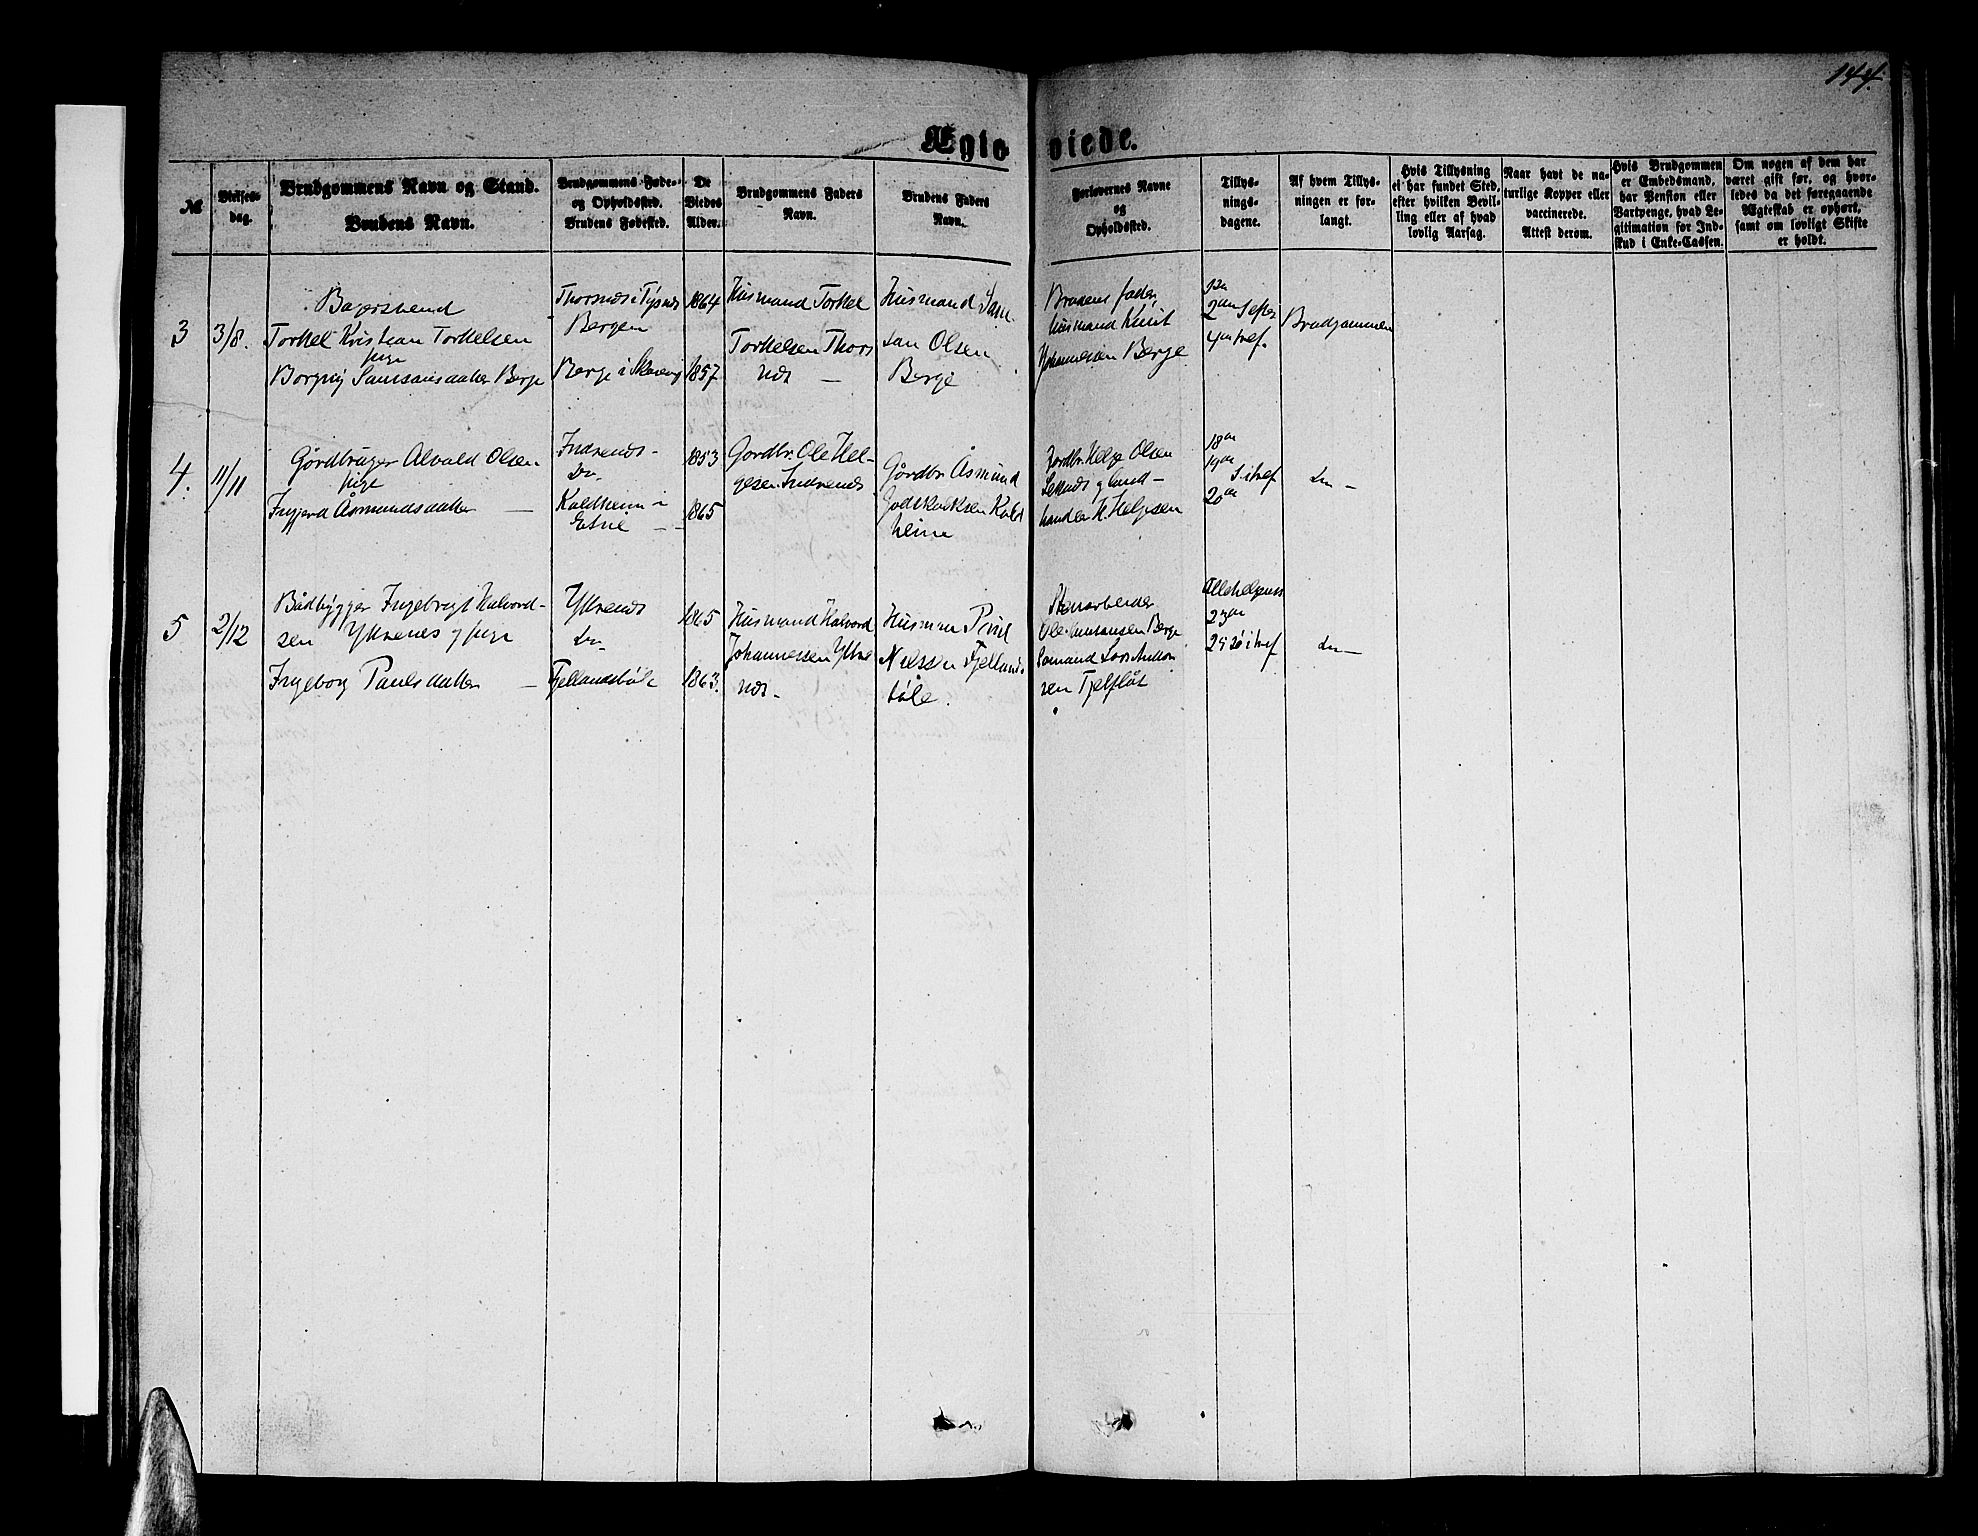 144.
Ægteviede.
№
Vielses-
dag.
Brudgommens Navn og Stand.
Brudens Navn.
Brudgommens Føde-
og Opholdssted.
Brudens Fødested.
De
Viedes
Alder.
Brudgommens Faders
Navn.
Brudens Faders
Navn.
Forlovernes Navne
og
Opholdssted.
Tillys-
nings-
dagene.
Af hvem Tillys-
ningen er for-
langt.
Hvis Tillysning
ei har fundet Sted,
efter hvilken Bevil-
ling eller af hvad
lovlig Aarsag.
Naar havt de na-
turlige Kopper eller
vaccinerede.
Attest derom.
Hvis Brudgommen
er Embedsmand,
har Pension eller
Vartpenge, hvad Le-
gitimation for Ind-
skud i Enke-Cassen.
Om nogen af dem har
været gift før, og hvor-
ledes da det foregaaende
Ægteskab er ophørt,
samt om lovligt Skifte
er holdt.
3
3/8.
Bagersvend
Torkel Kristian Torkelsen
pige
Samsonsdatter Berge
Thorsnæs i Tysnæs
Bergen
Berge i
1864
1857
Husmand Torkel
Torkelsen Thors
næs —
Husmand Sam
son Olsen
Berge
Brudens fader,
husmand Knut
Johannesen Berge
1ste
2den S efter
4de tref.
Brudgommen
4.
11/11
Gårdbruger Alvald Olsen
pige
Ingjerd Åsmundsdatter —
Indrenæs -
Do.
Kaldheim i
Etne — -
1853
1865
Gårdbr. Ole Hel-
gesen Indrenæs
Gårdbr. Åsmund
Kald
heim
Gårdbr. Helge Olsen
og land-
handler H. Helgesen
18de
19de
S i tref
20de
do —
5
2/12
Bådbygger Ingebrigt Halvord-
sen Ytrenes og pige
Ingeborg Paulsdatter —
Ytrenæs
Do.
Fjellandsbøle
1865
1863.
Husmand Halvord
Johannessen Ytre
næs.
Husman Paul
Nilssen Fjellands
bøle.
Stenarbeider
Ole Berge
Sømand Lars
sen Fjelfløt
Allehelgens
23de
24 Sø i tref
do —